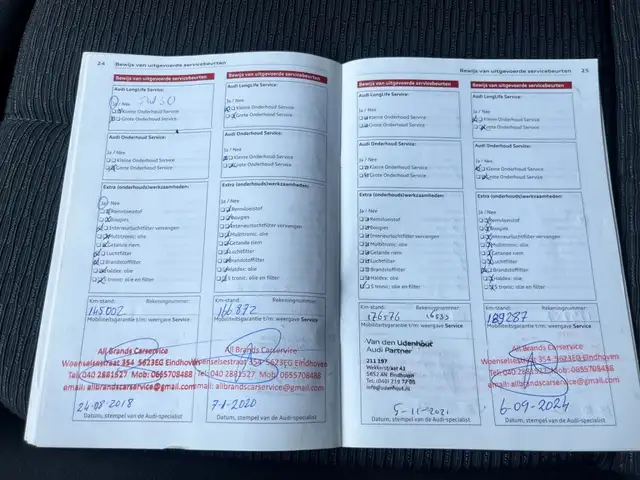 24 Bewijs van uitgevoerde servicebeurten
Bewijs van uitgevoerde servicebeurten
Audi LongLife Service:
Ja / Nee 5W30
Kleine Onderhoud Service
Grote Onderhoud Service
Audi Onderhoud Service:
Ja / Nee
Kleine Onderhoud Service
Grote Onderhoud Service
Extra (onderhouds)werkzaamheden:
Ja / Nee
Remvloeistof
Bougies
Interieurluchtfilter vervangen
Multitronic: olie
Getande riem
Luchtfilter
Brandstoffilter
Haldex: olie
S tronic: olie en filter
Km-stand: Rekeningnummer:
145002
Mobiliteitsgarantie t/m: weergave Service
All Brands Carservice
Woenselsestraat 354 5623EG Eindhoven
Tel: 040 2881527 Mob: 0655708488
email: allbrandscarservice@gmail.com
24-08-2018
Datum, stempel van de Audi-specialist
Bewijs van uitgevoerde servicebeurten
Audi LongLife Service:
Ja / Nee
Kleine Onderhoud Service
Grote Onderhoud Service
Audi Onderhoud Service:
Ja / Nee
Kleine Onderhoud Service
Grote Onderhoud Service
Extra (onderhouds)werkzaamheden:
Remvloeistof
Bougies
Interieurluchtfilter vervangen
Multitronic: olie
Getande riem
Luchtfilter
Brandstoffilter
Haldex: olie
S tronic: olie en filter
Km-stand: Rekeningnummer:
166872
Mobiliteitsgarantie t/m: weergave Service
All Brands Carservice
Woenselsestraat 354 5623EG Eindhoven
Tel: 040 2881527 Mob: 0655708488
email: allbrandscarservice@gmail.com
2020
Datum, stempel van de Audi-specialist
Bewijs van uitgevoerde servicebeurten 25
Bewijs van uitgevoerde servicebeurten
Audi LongLife Service:
Ja / Nee
Kleine Onderhoud Service
Grote Onderhoud Service
Audi Onderhoud Service:
Ja / Nee
Kleine Onderhoud Service
Grote Onderhoud Service
Extra (onderhouds)werkzaamheden:
Ja / Nee
Remvloeistof
Bougies
Interieurluchtfilter vervangen
Multitronic: olie
Getande riem
Luchtfilter
Brandstoffilter
Haldex: olie
S tronic: olie en filter
Km-stand: Rekeningnummer:
176576
Mobiliteitsgarantie t/m: weergave Service
Van den Udenhout
Audi Partner
211 197
Eindhoven
info@udenhout.nl
5-11-2021
Datum, stempel van de Audi-specialist
Bewijs van uitgevoerde servicebeurten
Audi LongLife Service:
Ja / Nee
Kleine Onderhoud Service
Grote Onderhoud Service
Audi Onderhoud Service:
Ja / Nee
Kleine Onderhoud Service
Grote Onderhoud Service
Extra (onderhouds)werkzaamheden:
Ja / Nee
Remvloeistof
Bougies
Interieurluchtfilter vervangen
Multitronic: olie
Getande riem
Luchtfilter
Brandstoffilter
Haldex: olie
S tronic: olie en filter
Km-stand: Rekeningnummer:
189287
Mobiliteitsgarantie t/m: weergave Service
All Brands Carservice
Woenselsestraat 354 5623EG Eindhoven
Tel: 040 2881527 Mob: 0655708488
email: allbrandscarservice@gmail.com
6-09-2024
Datum, stempel van de Audi-specialist